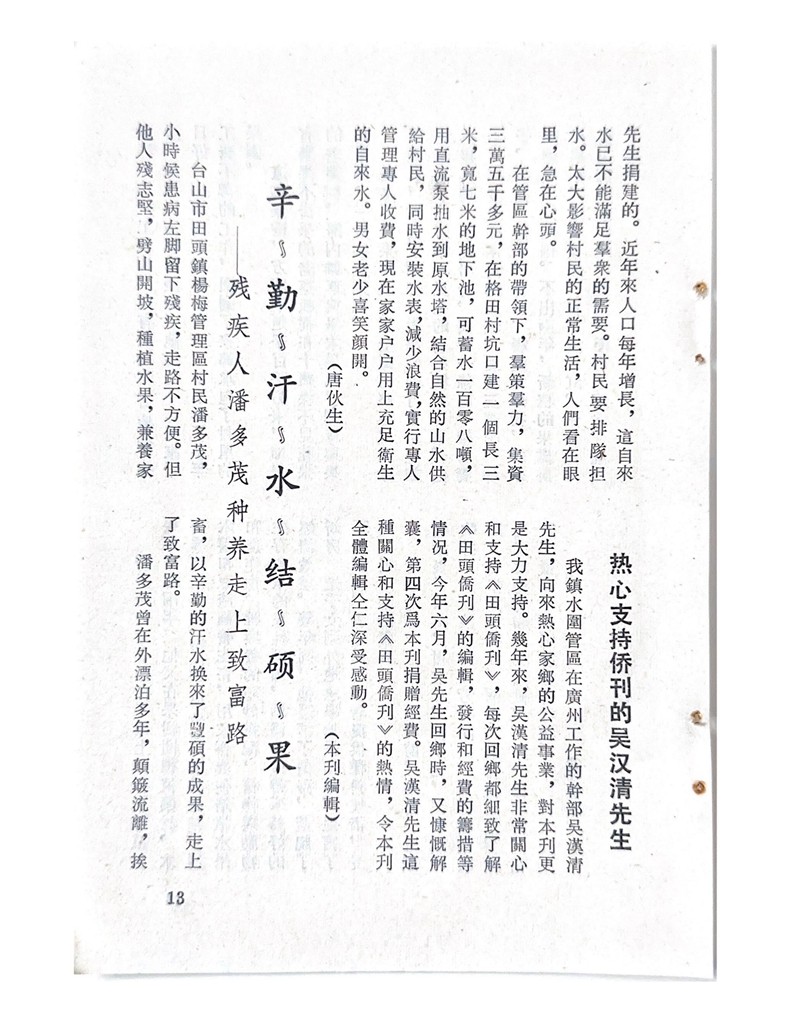 先生捐建的。近年來人口每年增長，這自來
水已不能滿足羣衆的需要。村民要排隊担
水。太大影響村民的正常生活，人們看在眼
里，急在心頭。
在管區幹部的帶領下，羣策羣力，集資
三萬五千多元，在格田村坑口建一個長三
米，寬七米的地下池，可蓄水一百零八噸，
用直流泵抽水到原水塔，結合自然的山水供
給村民，同時安裝水表，減少浪費，實行專人
管理專人收費，現在家家户户用上充足衛生
的自來水。男女老少喜笑顔開。
（唐伙生）
热心支持侨刊的吴汉清先生
我鎮水圍管區在廣州工作的幹部吳漢清
先生，向來熱心家鄉的公益事業，對本刊更
是大力支持。幾年來，吳漢清先生非常關心
和支持《田頭僑刊》，每次回鄉都細致了解
《田頭僑刊》的編輯，發行和經費的籌措等
情况，今年六月，吳先生回鄉時，又慷慨解
囊，第四次爲本刊捐贈經費。吳漢清先生這
種關心和支持《田頭僑刊》的熱情，令本刊
全體編輯仝仁深受感動。
（本刊編輯）
辛～勤～汗～水～结～硕～果
——残疾人潘多茂种养走上致富路
台山市田頭鎮楊梅管理區村民潘多茂，
小時候患病左脚留下殘疾，走路不方便。但
他人殘志堅，劈山開坡，種植水果，兼養家
畜，以辛勤的汗水换來了豐碩的成果，走上
了致富路。
潘多茂曾在外漂泊多年，顛簸流離，挨
13